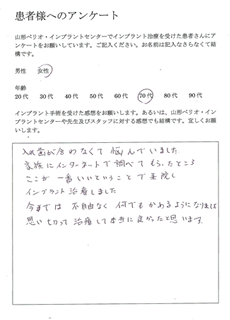 患者様へのアンケート
山形ペリオ・インプラントセンターでインプラント治療を受けた患者さんにア
ンケートをお願いしています。ご記入ください。お名前は記入なさらなくて結
構です。
男性 女性
年齢
20代 30代 40代 50代 60代 70代 80代 90代
インプラント手術を受けた感想をお願いします。あるいは、山形ペリオ・イン
プラントセンターや先生及びスタッフに対する感想でも結構です。宜しくお願
いします。
入歯が合わなくて悩んでいました
家族にインターネートで調べてもらったところ
ここが一番いいということで来院し
インプラント治療しました
今までは不自由なく何でもかめるようになりました
思い切って治療して本当に良かったと思います。